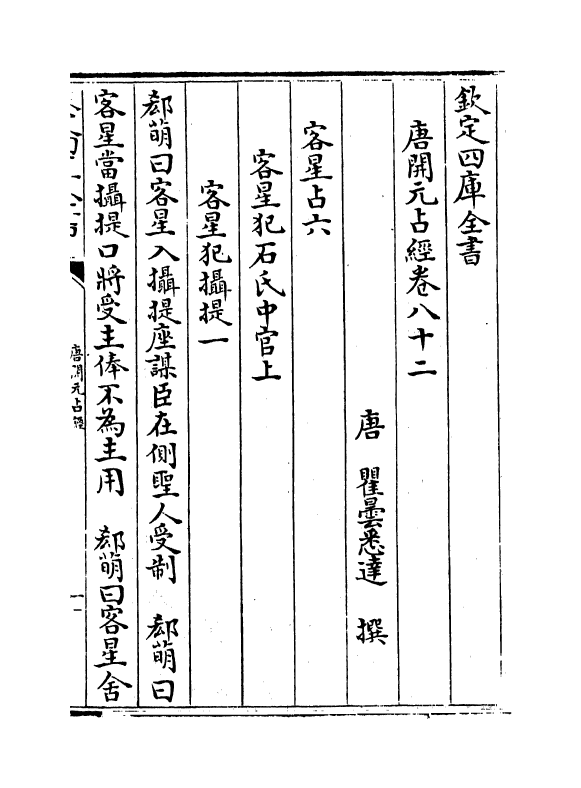 欽定四庫全書
唐開元占經卷八十二
唐　瞿曇悉達　撰
客星占六
客星犯石氏中官上
客星犯攝提一
郄萌曰客星入攝提座謀臣在側聖人受制　郄萌曰
客星當攝提口將受主俸不為主用　郄萌曰客星舍
唐開元占經
一